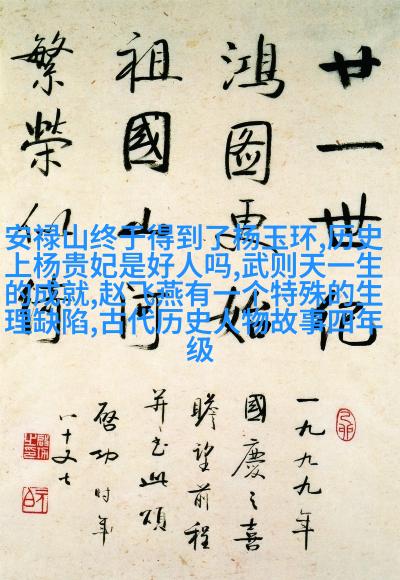 廿一世纪
鸿图更始
祖國山河
繁榮似綺
一九九九年
國慶之喜
瞻望前程
并书此頌
啓功时年
八十又七
安禄山终于得到了杨玉环,历史
上杨贵妃是好人吗,武则天一生
的成就,赵飞燕有一个特殊的生
理缺陷,古代历史人物故事四年
级